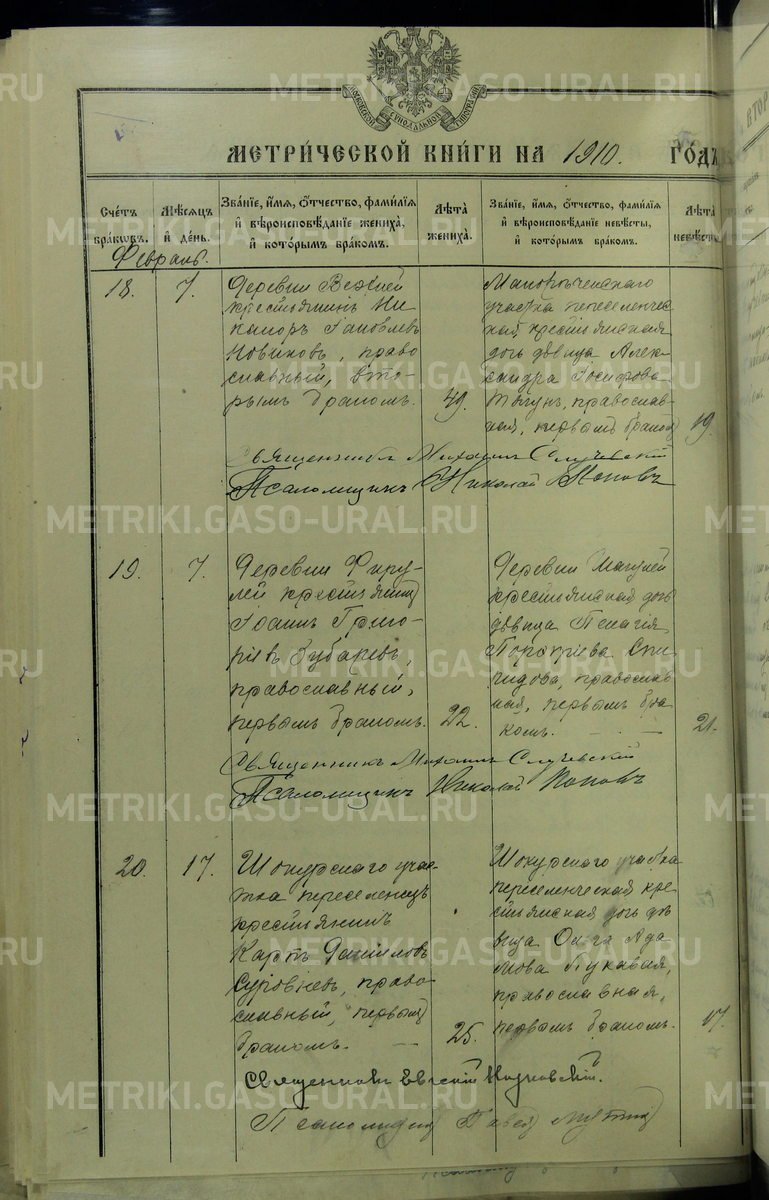 МОСКОВСКОЙ СѴНОДАЛЬНОЙ ТИПОГРАФІИ
МЕТРИ́ЧЕСКОЙ КНИ́ГИ НА 1910. ГО́ДЪ
Сче́тъ бра́кωвъ.
Мѣ́сѧцъ и҆ де́нь.
Зва́нїе, и҆́мѧ, ѻ҆́тчество, фами́лїѧ
и҆ вѣроисповѣ́данїе жениха̀,
и҆ кото́рымъ бра́комъ.
Лѣта̀ жениха̀.
Зва́нїе, и҆́мѧ, ѻ҆́тчество, фами́лїѧ
и҆ вѣроисповѣ́данїе невѣ́сты,
и҆ кото́рымъ бра́комъ.
Лѣта̀ невѣ́сты
Февраль.
18.
7.
Деревни
крестьянинъ Ни-
каноръ Іаковлевъ
Новиковъ, право
славный, вто-
рымъ бракомъ.
49.
участка переселенчес-
кая, крестьянская
дочь дѣвица Алек-
сандра Іосифова
православ-
ная, первымъ бракомъ
19.
Священникъ Михаилъ Случевскій
Псаломщикъ Николай Поповъ
19.
7.
Деревни Фиру-
лей крестьянинъ
Іоаннъ Григо-
рiевъ Зубаревъ,
православный,
первымъ бракомъ.
22.
Деревни
крестьянская дочь
дѣвица Пелагія
православ
ная, первымъ бра
комъ.
21.
Священникъ Михаилъ Случевскій
Псаломщикъ Николай Поповъ
20.
17.
Шокурскаго учас-
тка переселенецъ
крестьянинъ
Карпъ Даніиловъ
православный, первымъ
бракомъ.
25.
Шокурскаго участка
переселенческая кре
стьянская дочь дѣ
вица Ольга Ада
мова
православная,
первымъ бракомъ.
17.
Священникъ Евгеній
Псаломщикъ Павелъ
METRIKI.GASO-URAL.RU